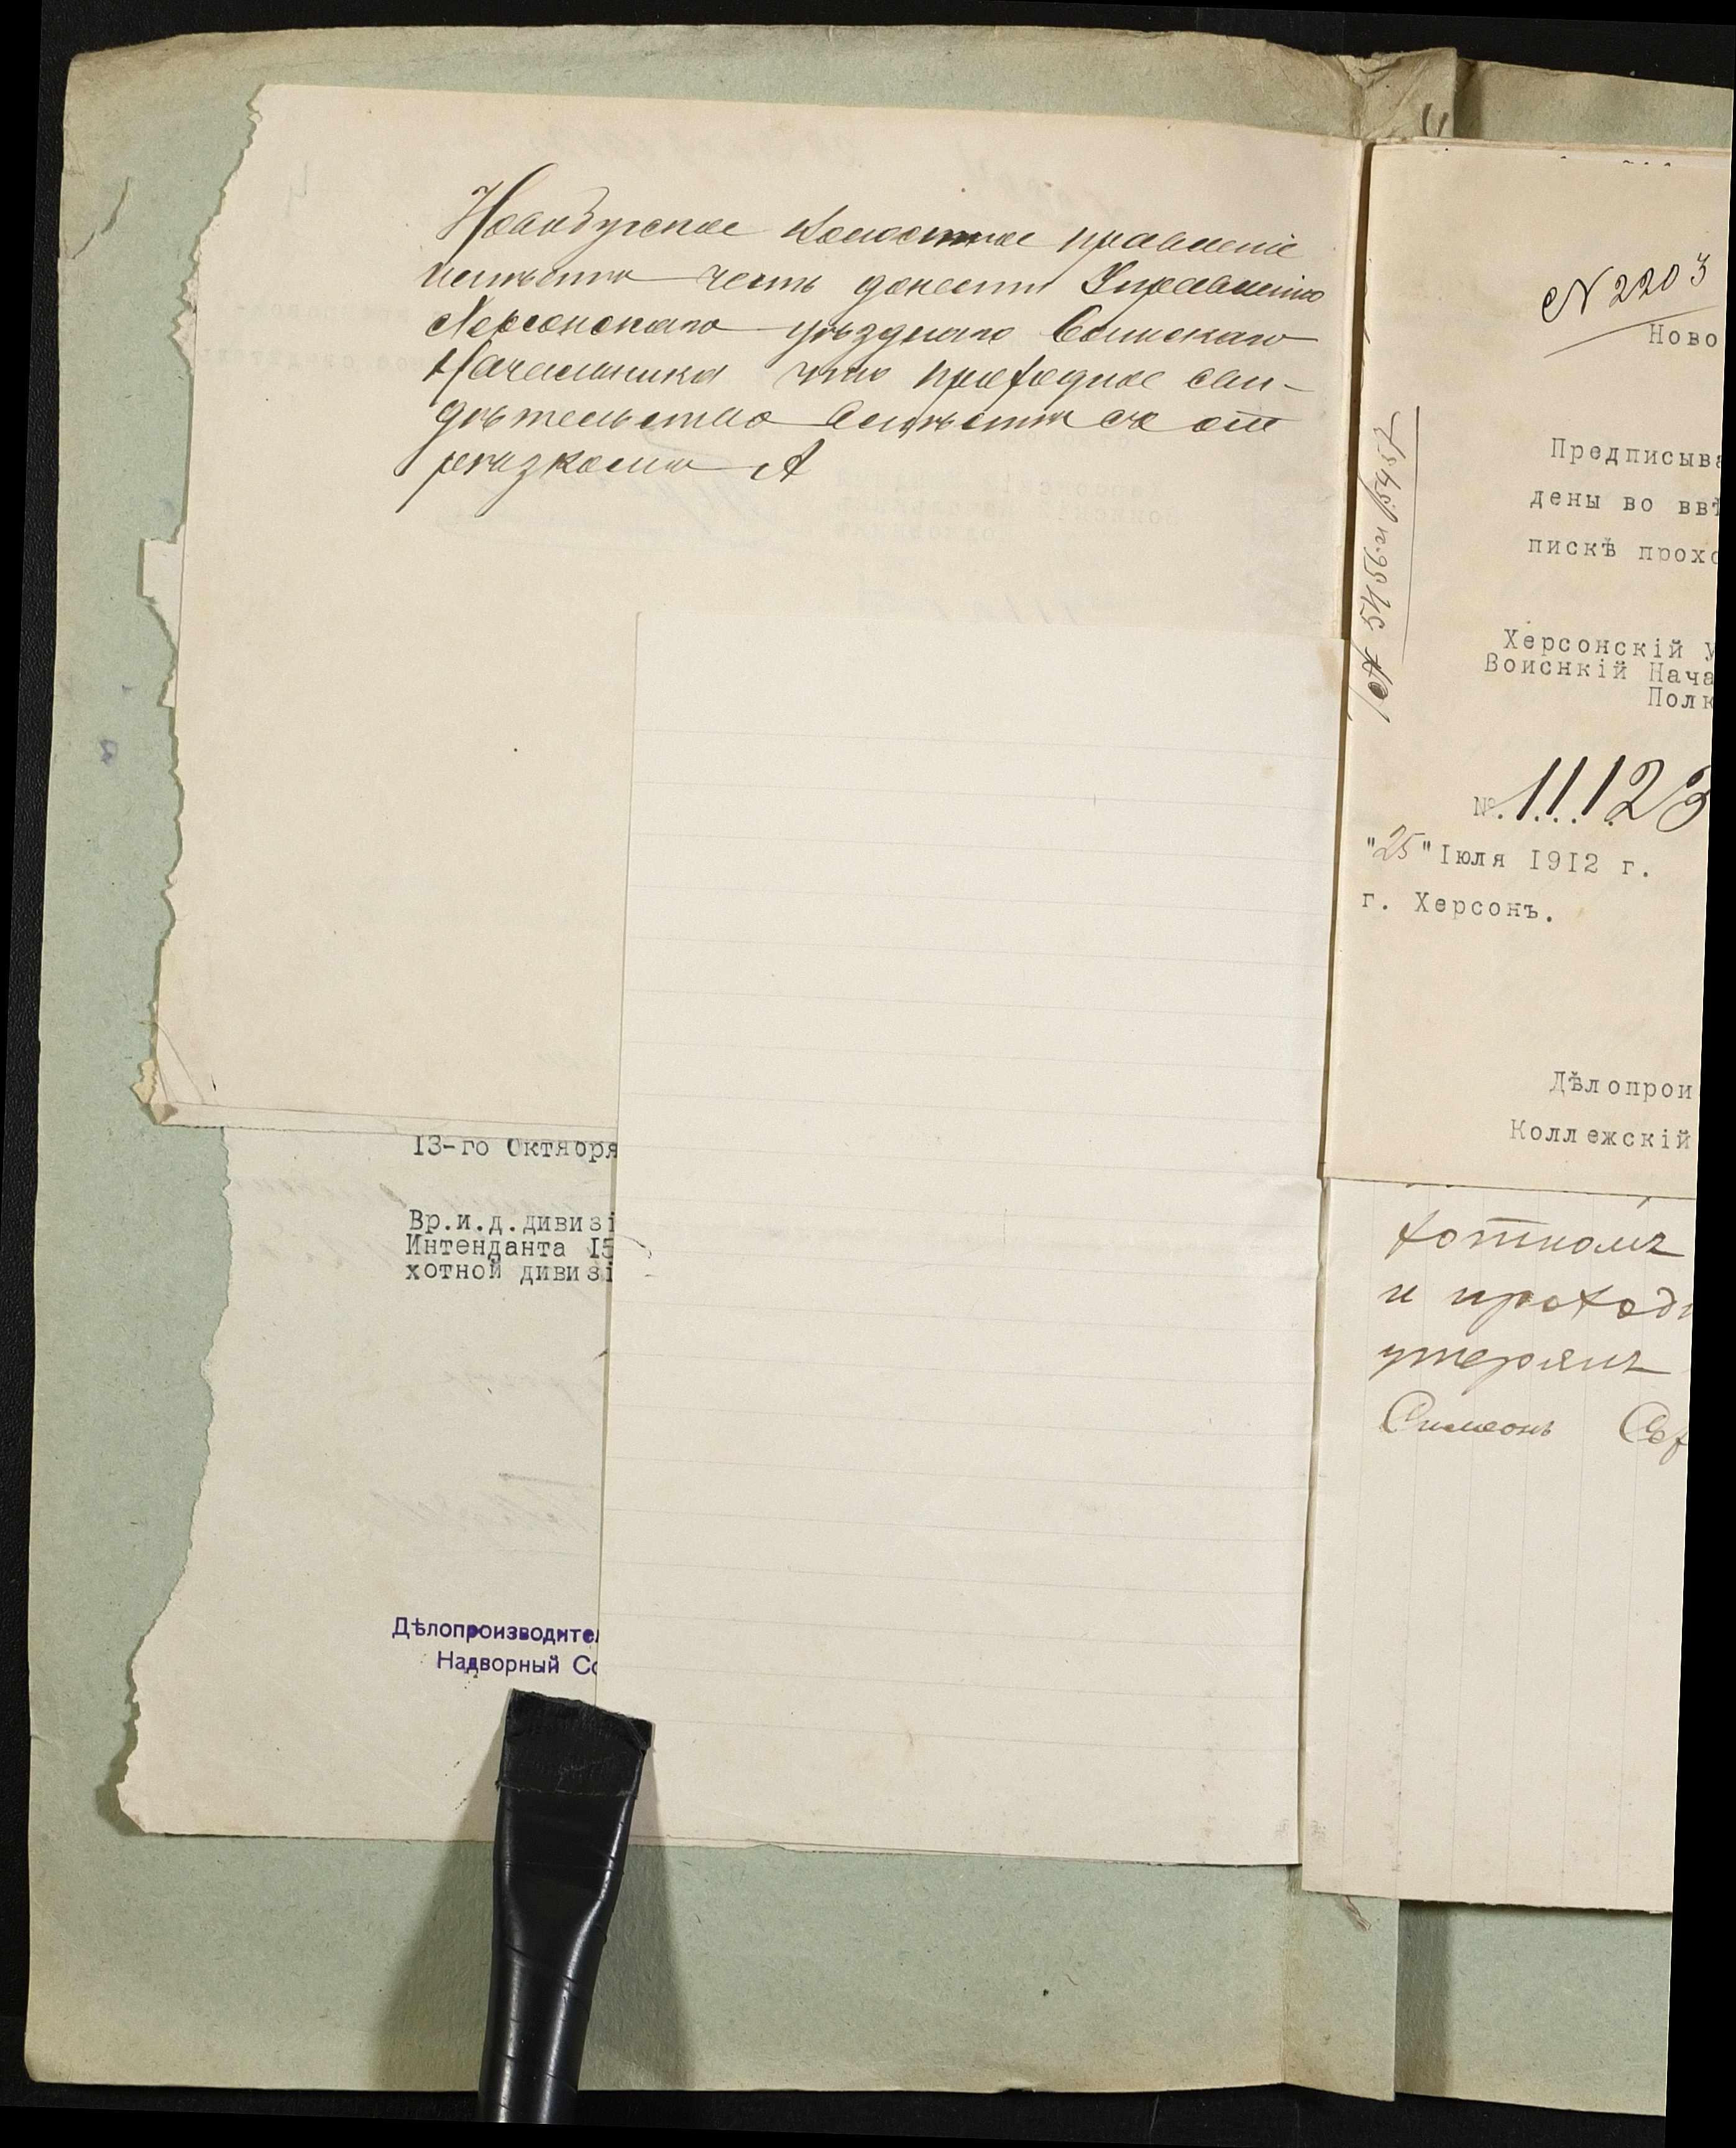 Новобугское Волостное правленіе
имѣетъ честь донести Управленію
Херсонскаго уѣзднаго Воинскаго
Начальника что проходное сви-
дѣтельство
13-го Октября
Вр.и.д.дивизі
Интенданта 15
хотной дивизі
Дѣлопроизводител
Надворный Со
№ 2203
Ново
Предписыва
дены во ввѣ
пискѣ прохо
Херсонскій у
Воиснкій Нача
Полк
№. 11123
"25" Іюля 1912 г.
г. Херсонъ.
Дѣлопрои
Коллежскій
хотномъ
и проход
утерянъ
Симеонъ